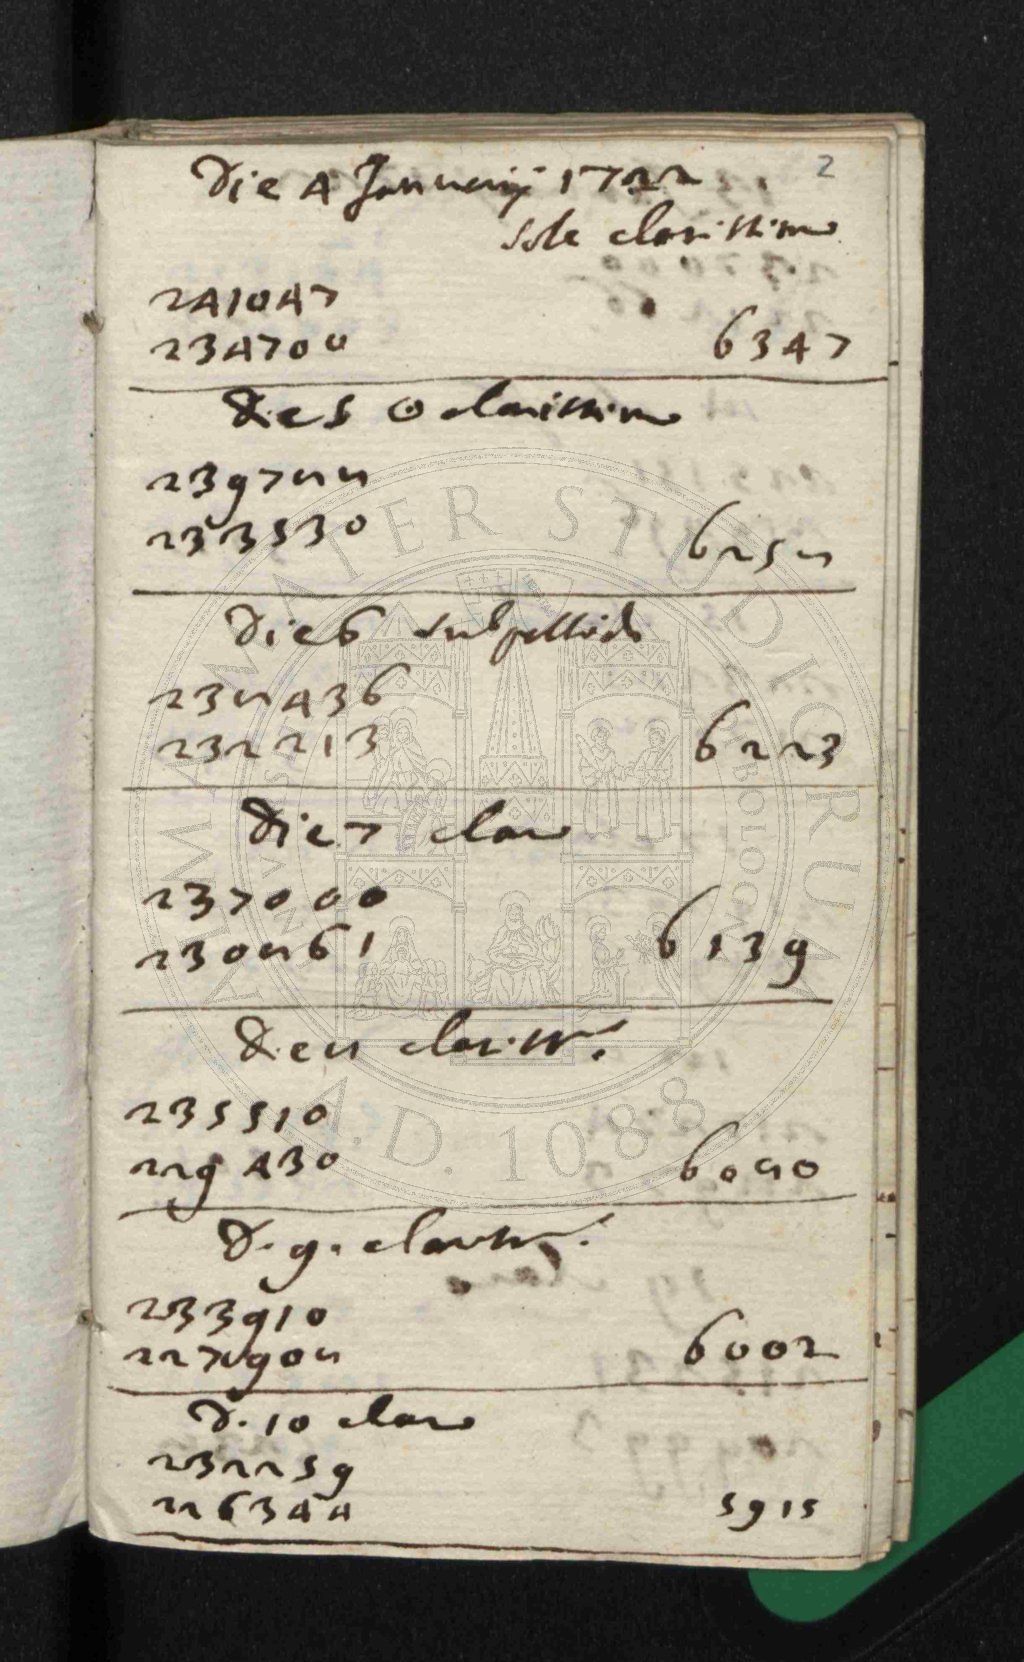 2
Die 4 Januarij 1722
Sole clarissimo
241047
234700 6347
Die 5 ☉ clarissimo
239788
233530 6258
Die 6 subpallido
238436
232213 6223
Die 7 claro
237000
230861 6139
Die 8 clariss.
235510
229430 6080
D. 9. clariss.
233910
227908 6002
D. 10 claro
232259
226344 5915
ALMA MATER STUDIORUM
A.D. 1088